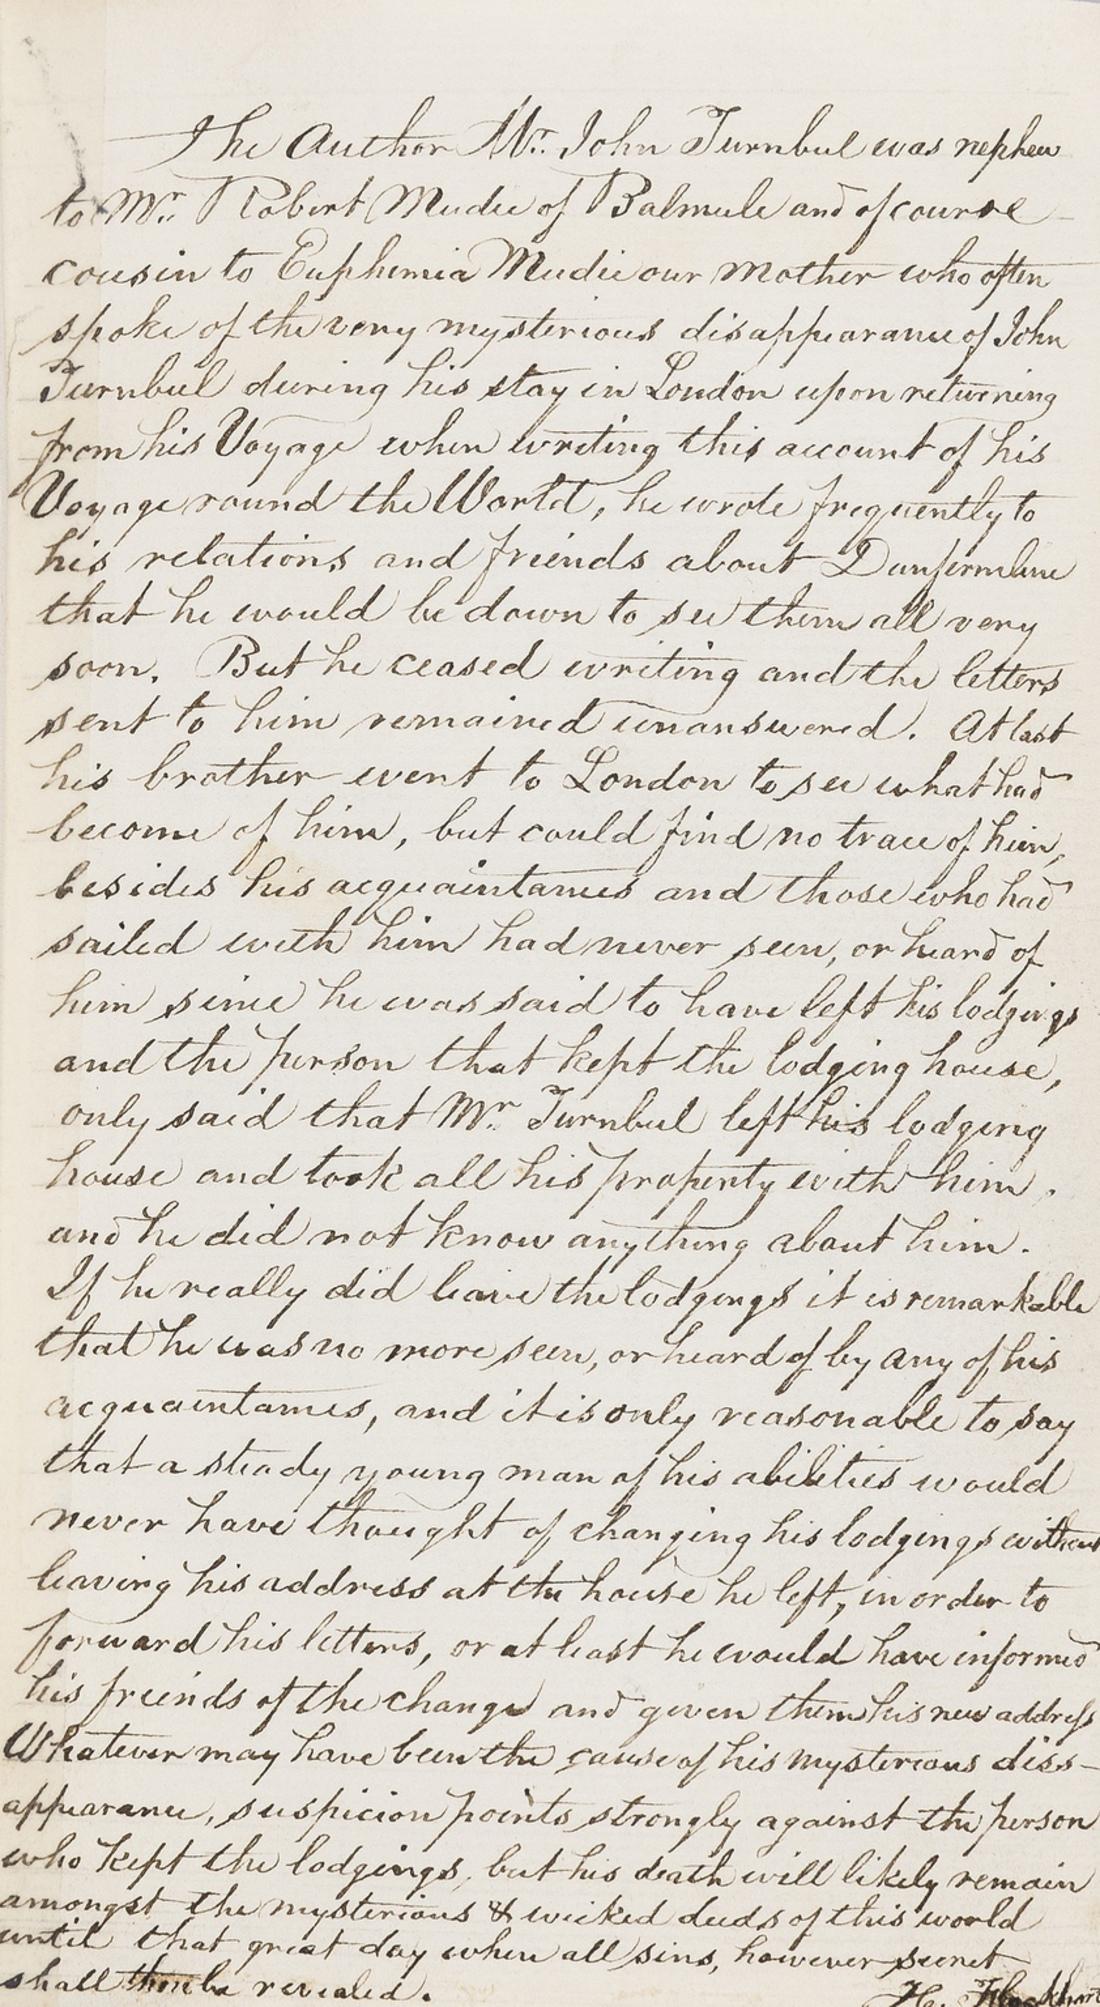 The Author Mr. John Turnbul was nephew
to Mr. Robert Mudie of Balmule and of course
cousin to Euphemia Mudie our Mother who often
spoke of the very mysterious disappearance of John
Turnbul during his stay in London upon returning
from his Voyage when writing this account of his
Voyage round the World, he wrote frequently to
his relations and friends about Dunfermline
that he would be down to see them all very
soon. But he ceased writing and the letters
sent to him remained unanswered. At last
his brother went to London to see what had
become of him, but could find no trace of him,
besides his acquaintances and those who had
sailed with him had never seen, or heard of
him since he was said to have left his lodgings
and the person that kept the lodging house,
only said that Mr. Turnbul left his lodging
house and took all his property with him.
and he did not know anything about him.
If he really did leave the lodgings it is remarkable
that he was no more seen, or heard of by any of his
acquaintances, and it is only reasonable to say
that a steady young man of his abilities would
never have thought of changing his lodgings without
leaving his address at the house he left, in order to
forward his letters, or at least he would have informed
his freinds of the change and given them his new address
Whatever may have been the cause of his mysterious diss-
appearance, suspicion points strongly against the person
who kept the lodgings, but his death will likely remain
amongst the mysterious & wicked deeds of this world
until that great day when all sins, however secret
shall be revealed.
H.